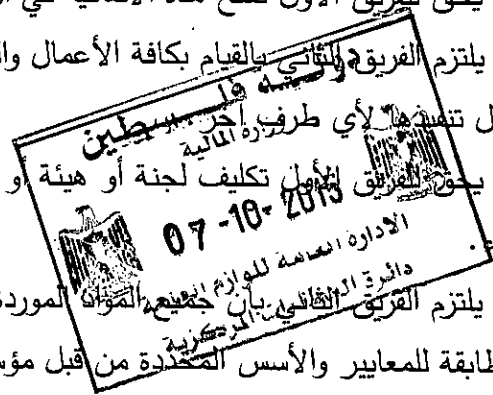 يحق للفريق الأول فسخ هذه الاتفاقية في
يلتزم الفريق الثاني بالقيام بكافة الأعمال
تنفيذها لأي طرف آخر
يحق للفريق الأول تكليف لجنة أو هيئة أو
يلتزم الفريق الثاني بأن جميع المواد الموردة
طابقة للمعايير والأسس المحددة من قبل
دولة فلسطين
وزارة المالية
07-10-2015
الادارة العامة للوازم العامة
دائرة العطاءات المركزية